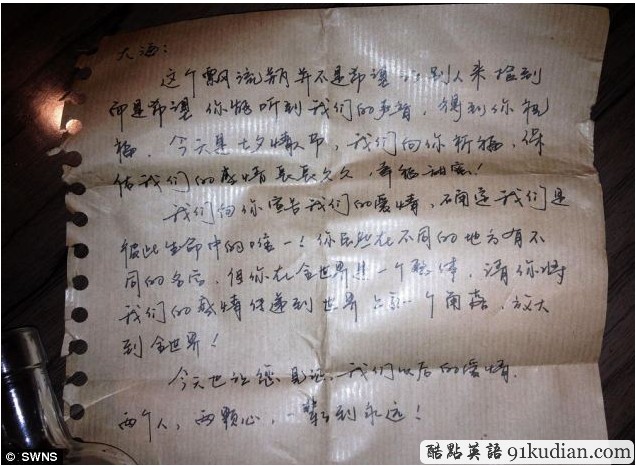 大海：
这个漂流瓶并不是希望 别人来捡到
而是希望你能听到我们的声音，得到你祝
福。今天是七夕情人节，我们向你祈福，保
佑我们的感情长长久久，幸福甜蜜！
我们向你宣告我们的爱情，确定我们是
彼此生命中的唯一！你虽然在不同的地方有不
同的名字，但你在全世界是一个整体，请你将
我们的感情传递到世界 一个角落，放大
到全世界！
今天也让您见证，我们以后的爱情，
两个人，两颗心，一 到永远！
© SWNS
酷點英語 91kudian.com